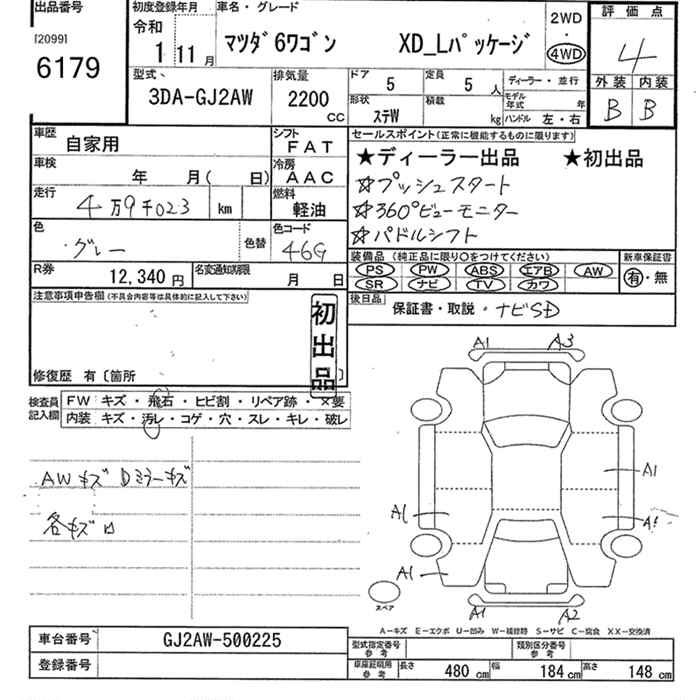 出品番号
[2099]
6179
初度登録年月
令和
1 11月
車名・グレード
マツダ6ワゴン XD_Lパッケージ
2WD
・
4WD
評価点
4
外装 内装
B B
型式
3DA-GJ2AW
排気量
2200
CC
ドア
5
定員
5 人
形状
ステW
積載
kg
ディーラー・並行
モデル年式 年
ハンドル 左・右
車歴
自家用
シフト
FAT
車検
年 月( 日)
冷房
AAC
走行
4万9千023 km
燃料
軽油
色
グレー
色替
色コード
46G
R券
12,340円
名変通知期限
月 日
セールスポイント(正常に機能するものに限ります)
★ディーラー出品 ★初出品
☆プッシュスタート
☆360°ビューモニター
☆パドルシフト
装備品(純正品に限り○をつけてください)
PS PW ABS エアB AW
SR ナビ TV カワ
新車保証書
有・無
後日品
保証書・取説・ナビSD
注意事項申告欄(不具合内容等は具体的に記入して下さい)
初出品
修復歴 有〔箇所
検査員記入欄
FW キズ・飛石・ヒビ割・リペア跡・X要
内装 キズ・汚レ・コゲ・穴・スレ・キレ・破レ
AWキズ Dミラーキズ
各キズ
A1 A3
A1
A1 A1
A1
スペア
A1 A2
A-キズ E-エクボ U-凹み W-補修跡 S-サビ C-腐食 XX-交換済
車台番号
GJ2AW-500225
登録番号
型式指定番号参考
類別区分番号参考
車庫証明用参考
長さ 480cm 幅 184cm 高さ 148cm